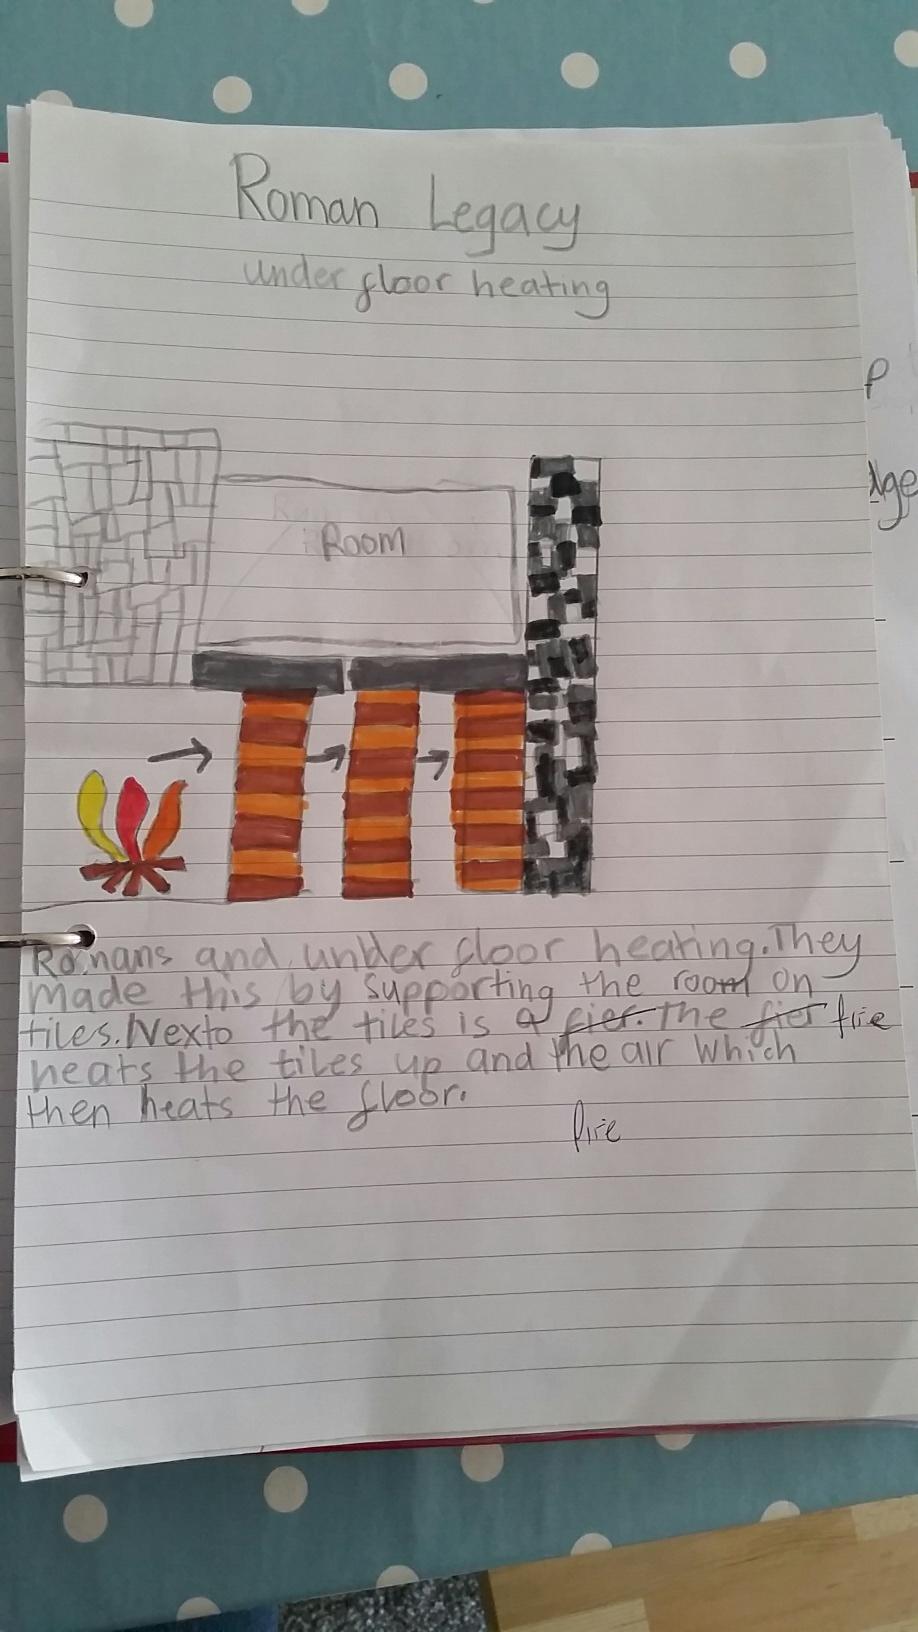 Roman Legacy
under floor heating
Room
Romans and under floor heating. They
made this by supporting the room on
tiles. Nexto the tiles is a fier. The fier fire
heats the tiles up and the air which
then heats the floor.
fire
p
dge